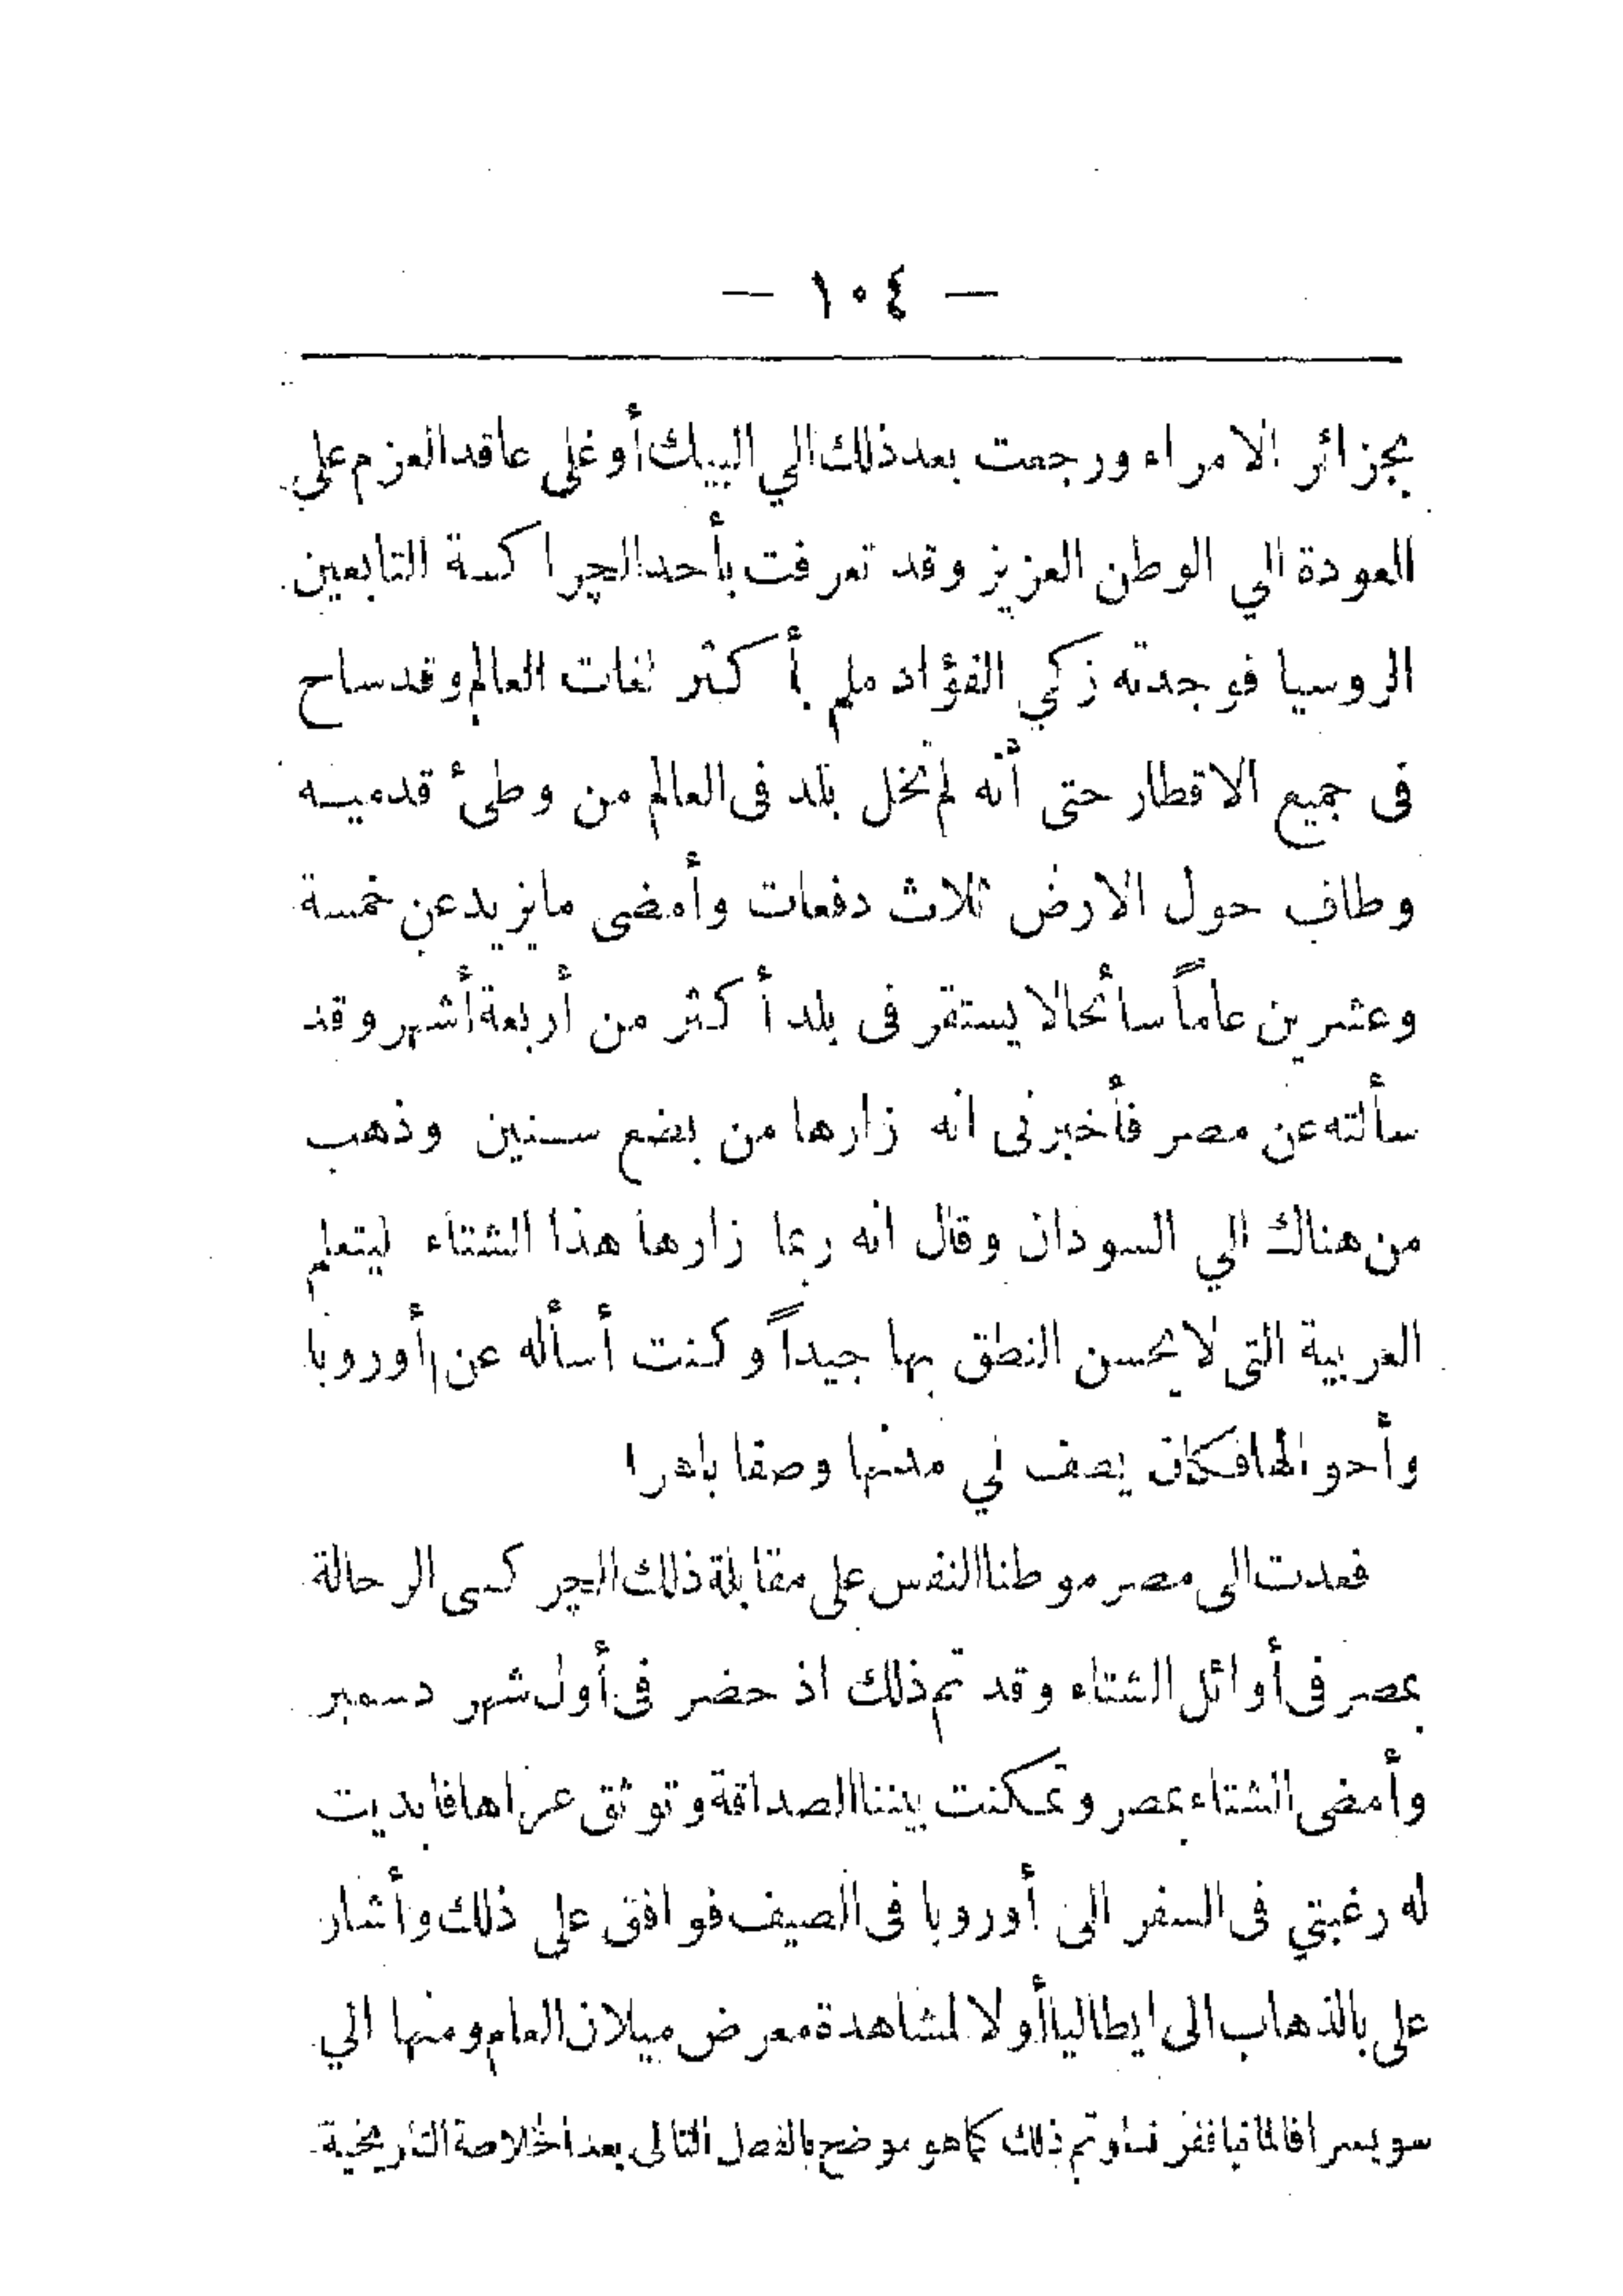 — ١٠٤ —
بجزائر الامراء ورجعت بعد ذلك الي البيك أوغلى عاقد العزم علي
العودة الي الوطن العزيز وقد تعرفت بأحد الچراكسة التابعين
الروسيا فوجدته زكي الفؤاد ملم بأكثر لغات العالم وقد ساح
فى جميع الاقطار حتى أنه لم تخل بلد فى العالم من وطئ قدميه
وطاف حول الارض ثلاث دفعات وأمضى ما يزيد عن خمسة
وعشرين عاماً سائحا لا يستقر فى بلد أكثر من أربعة أشهر وقد
سألته عن مصر فأخبرنى انه زارها من بضع سنين وذهب
من هناك الي السودان وقال انه ربما زارها هذا الشتاء ليتعلم
العربية التى لا يحسن النطق بها جيداً وكنت أسأله عن أوروبا
وأحوالها فكان يصف لي مدنها وصفا باهرا
فعدت الى مصر موطنا النفس على مقابلة ذلك الچركسى الرحالة
بمصر فى أوائل الشتاء وقد تم ذلك اذ حضر فى أول شهر دسمبر
وأمضى الشتاء بمصر وتمكنت بيننا الصداقة وتوثق عراها فابديت
له رغبتي فى السفر الى أوروبا فى الصيف فوافق على ذلك وأشار
على بالذهاب الى ايطاليا أولا لمشاهدة معرض ميلان العام ومنها الي
سويسرا فالمانيا ففرنسا وتم ذلك كما هو موضح بالفصل التالى بعد الخلاصة التاريخية